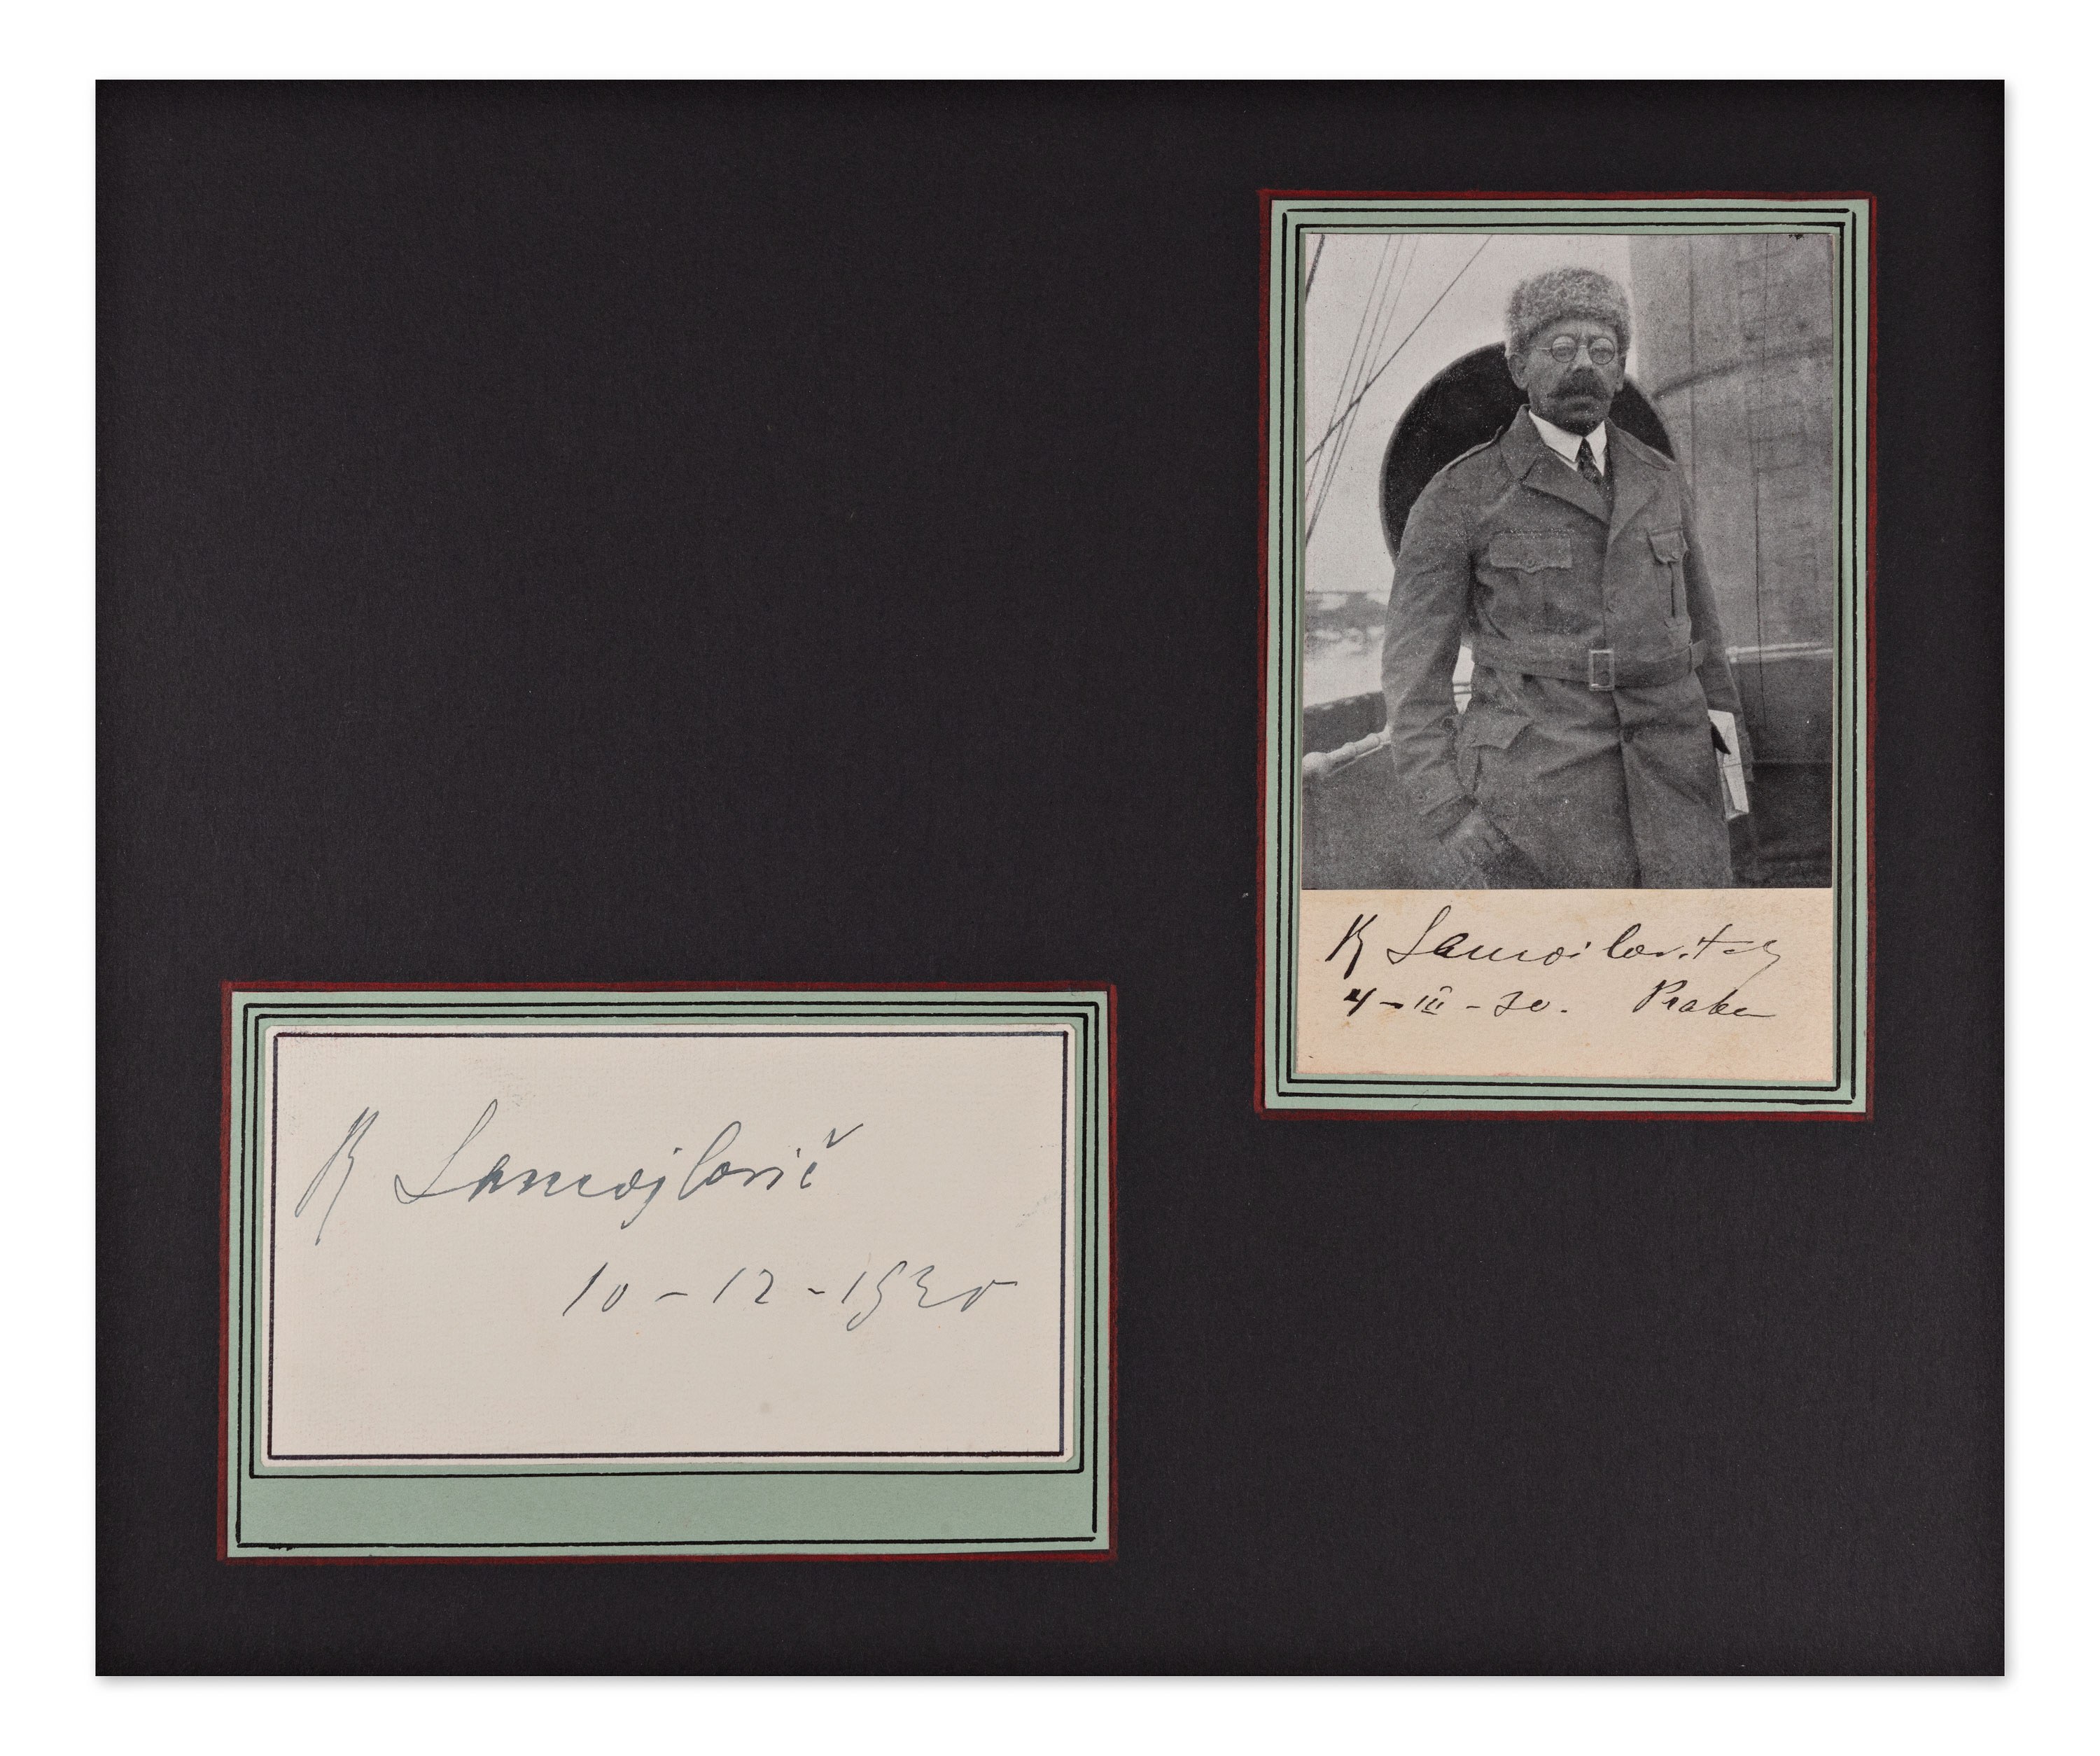 R Samoilovitch
4-III-30. Praha
R Samojlovič
10-12-1930